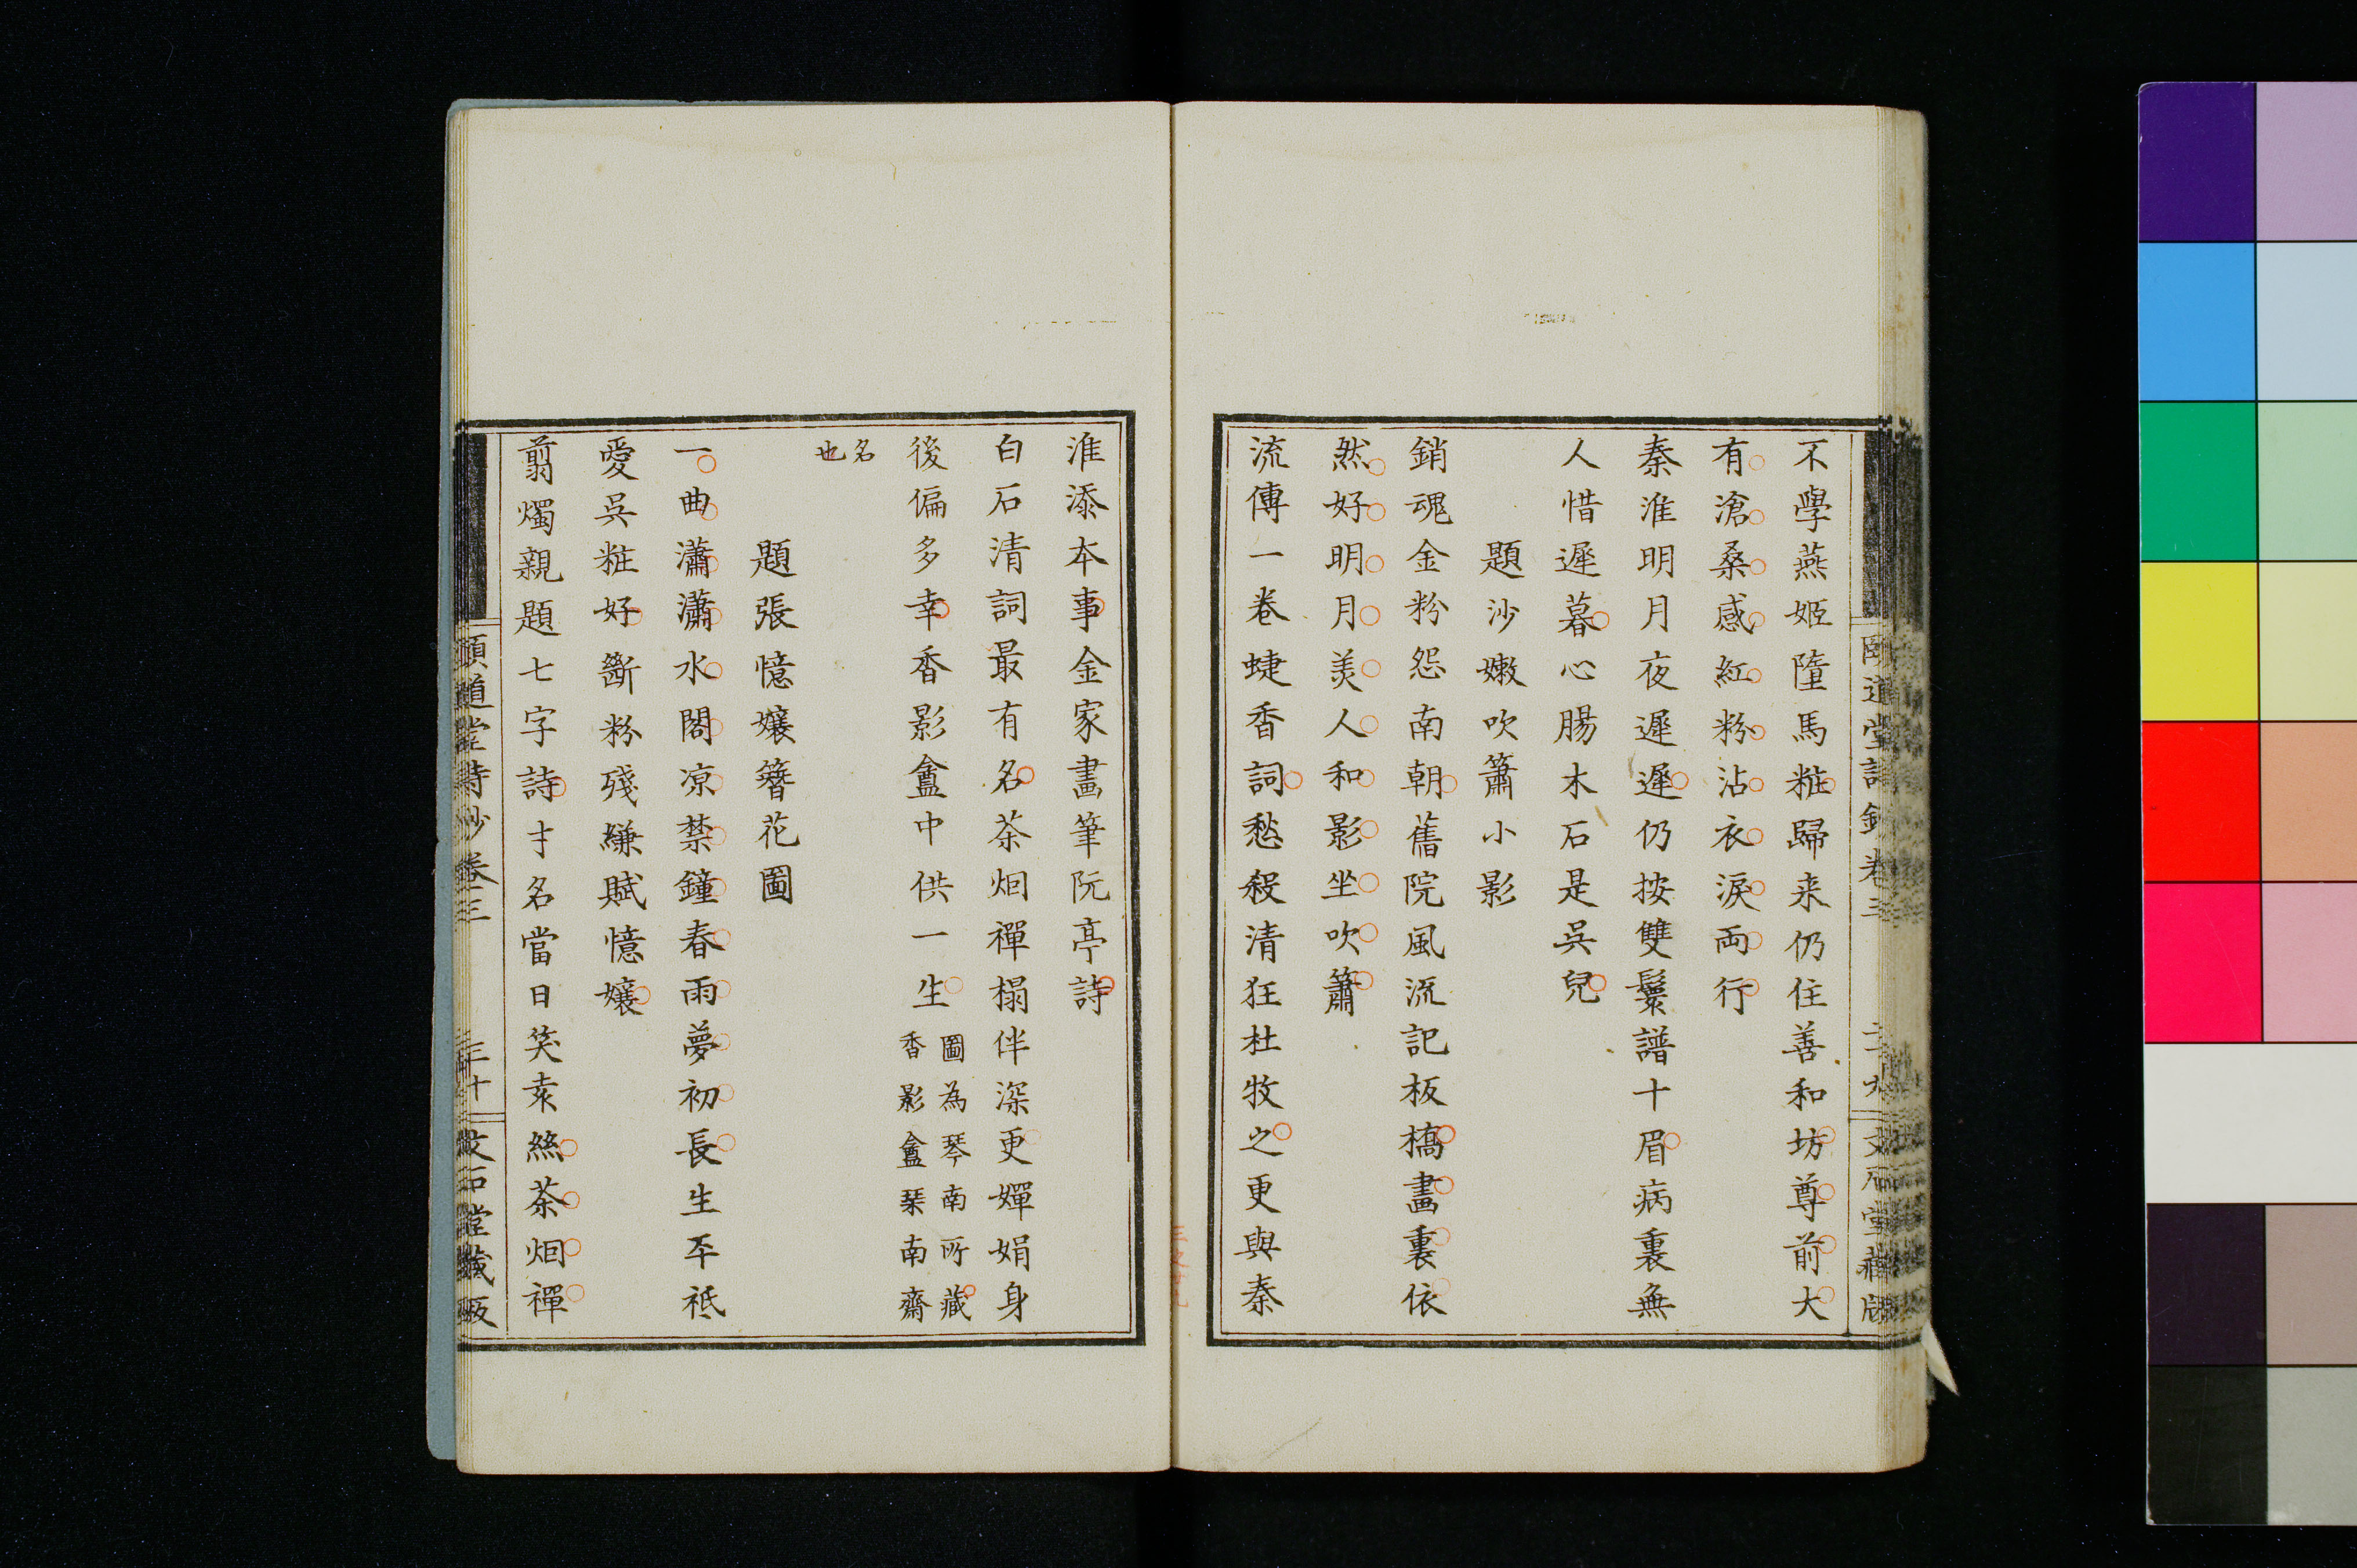 不學燕姬墮馬粧歸来仍住善和坊尊前大
有滄桑感紅粉沾衣淚両行
秦淮明月夜遲遲仍按雙鬟譜十眉病裏無
人惜遲暮心腸木石是吳兒
題沙嫩吹簫小影
銷魂金粉怨南朝舊院風流記板橋畫裏依
然好明月美人和影坐吹簫
流傳一卷蜨香詞愁殺清狂杜牧之更與秦
淮添本事金家畫筆阮亭詩
白石清詞最有名茶烟禪榻伴深更嬋娟身
後偏多幸香影盦中供一生
圖為琴南所藏
香影盦琹南齋
名
也
題張憶孃簪花圖
一曲瀟瀟水閣凉禁鐘春雨夢初長生平祗
愛吳粧好斷粉殘縑賦憶孃
翦燭親題七字詩才名當日笑袁絲茶烟禪
頤道堂詩鈔卷三
三十
文石堂藏版